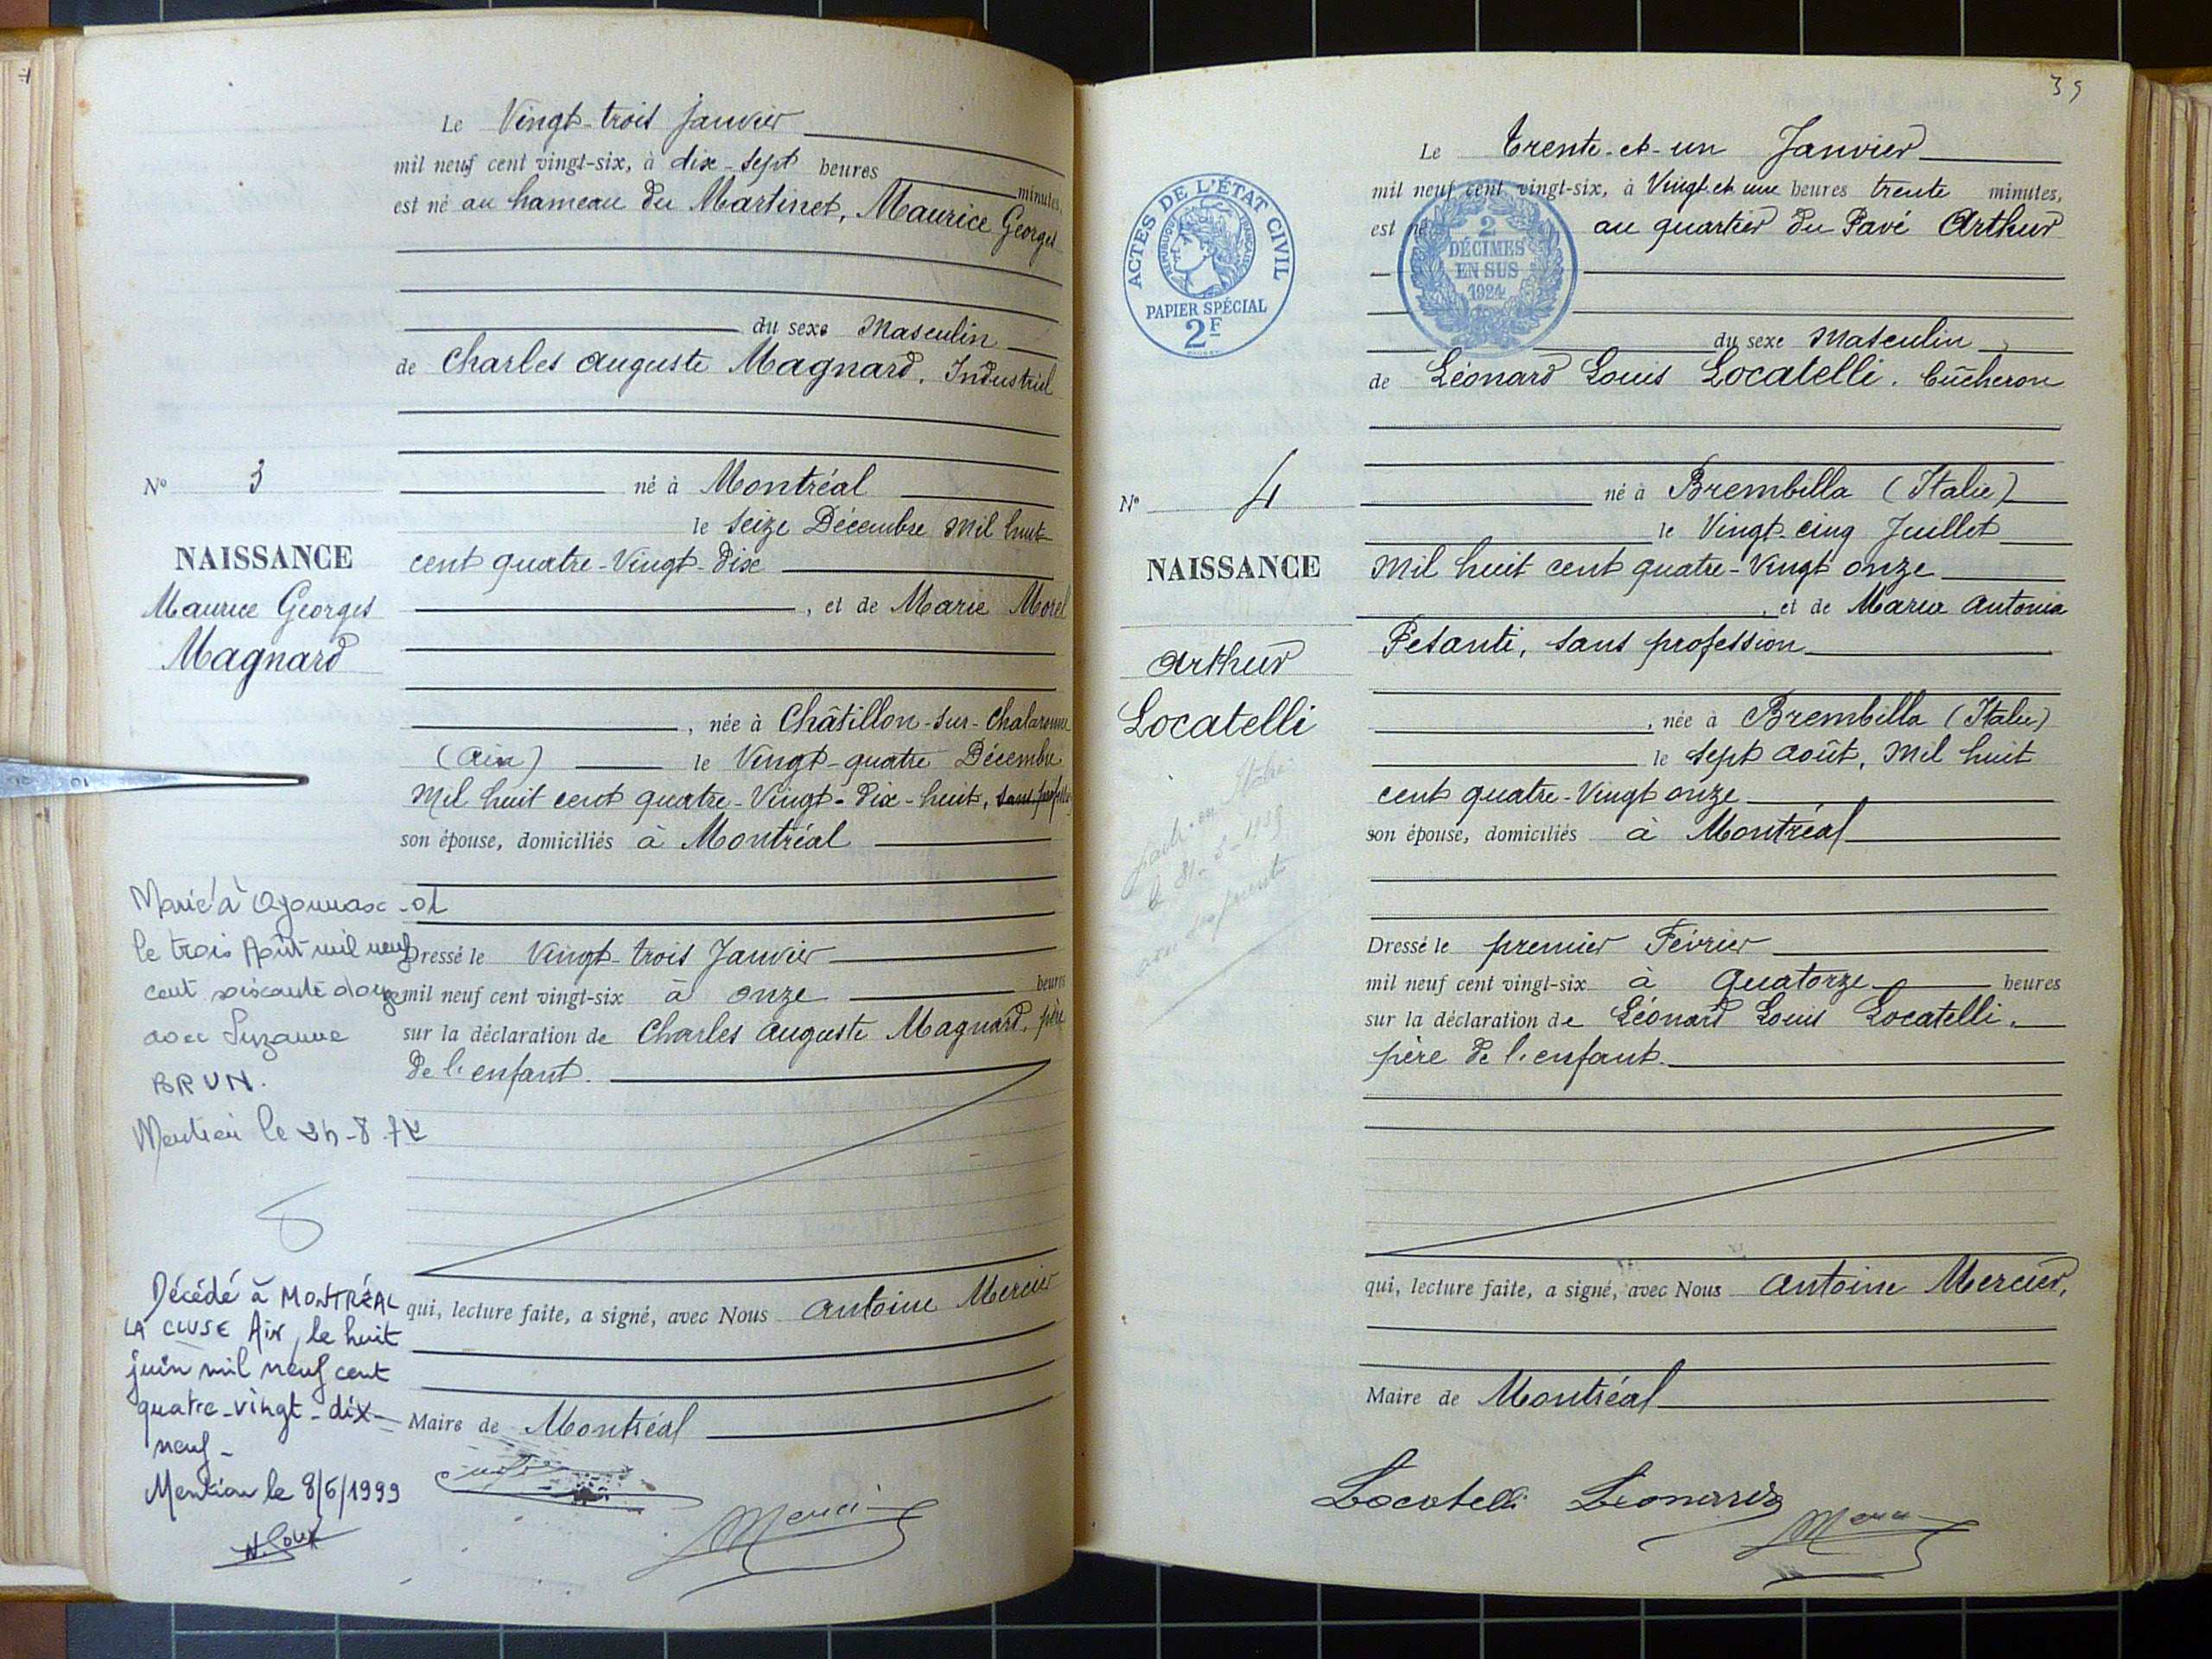 Le Vingt-trois Janvier
mil neuf cent vingt-six, à dix-sept heures minutes,
est né au hameau du Martinet, Maurice Georges
du sexe Masculin
de Charles Auguste Magnard, Industriel
né à Montréal
le seize Décembre Mil huit
cent quatre-Vingt-Dix
, et de Marie Morel
, née à Châtillon-sur-Chalaronne
(Ain) le Vingt-quatre Décembre
Mil huit cent quatre-Vingt-Dix-huit,
son épouse, domiciliés à Montréal
Dressé le Vingt-trois Janvier
mil neuf cent vingt-six à onze heures
sur la déclaration de Charles Auguste Magnard, père
de l'enfant.
qui, lecture faite, a signé, avec Nous Antoine Mercier
Maire de Montréal
N° 3
NAISSANCE
Maurice Georges
Magnard
Marié à Oyonnax - 01
le trois Août mil neuf
cent soixante douze
avec Suzanne
BRUN.
Mention le 24-8-72
Décédé à MONTRÉAL
LA CLUSE Ain, le huit
juin mil neuf cent
quatre-vingt-dix-
neuf-
Mention le 8/6/1999
39
ACTES DE L'ÉTAT CIVIL
RÉPUBLIQUE FRANÇAISE
PAPIER SPÉCIAL
2F
2
DÉCIMES
EN SUS
1924
Le trente-et-un Janvier
mil neuf cent vingt-six, à Vingt et une heures trente minutes,
est né au quartier du Pavé Arthur
du sexe Masculin
de Léonard Louis Locatelli. bûcheron
né à Brembilla (Italie)
le Vingt-cinq Juillet
Mil huit cent quatre-Vingt onze
, et de Maria Antonia
Pesanti, sans profession
, née à Brembilla (Italie)
le sept Août, Mil huit
cent quatre-Vingt onze
son épouse, domiciliés à Montréal
Dressé le premier Février
mil neuf cent vingt-six à Quatorze heures
sur la déclaration de Léonard Louis Locatelli,
père de l'enfant.
qui, lecture faite, a signé, avec Nous Antoine Mercier,
Maire de Montréal
Locatelli Leonard
N° 4
NAISSANCE
Arthur
Locatelli